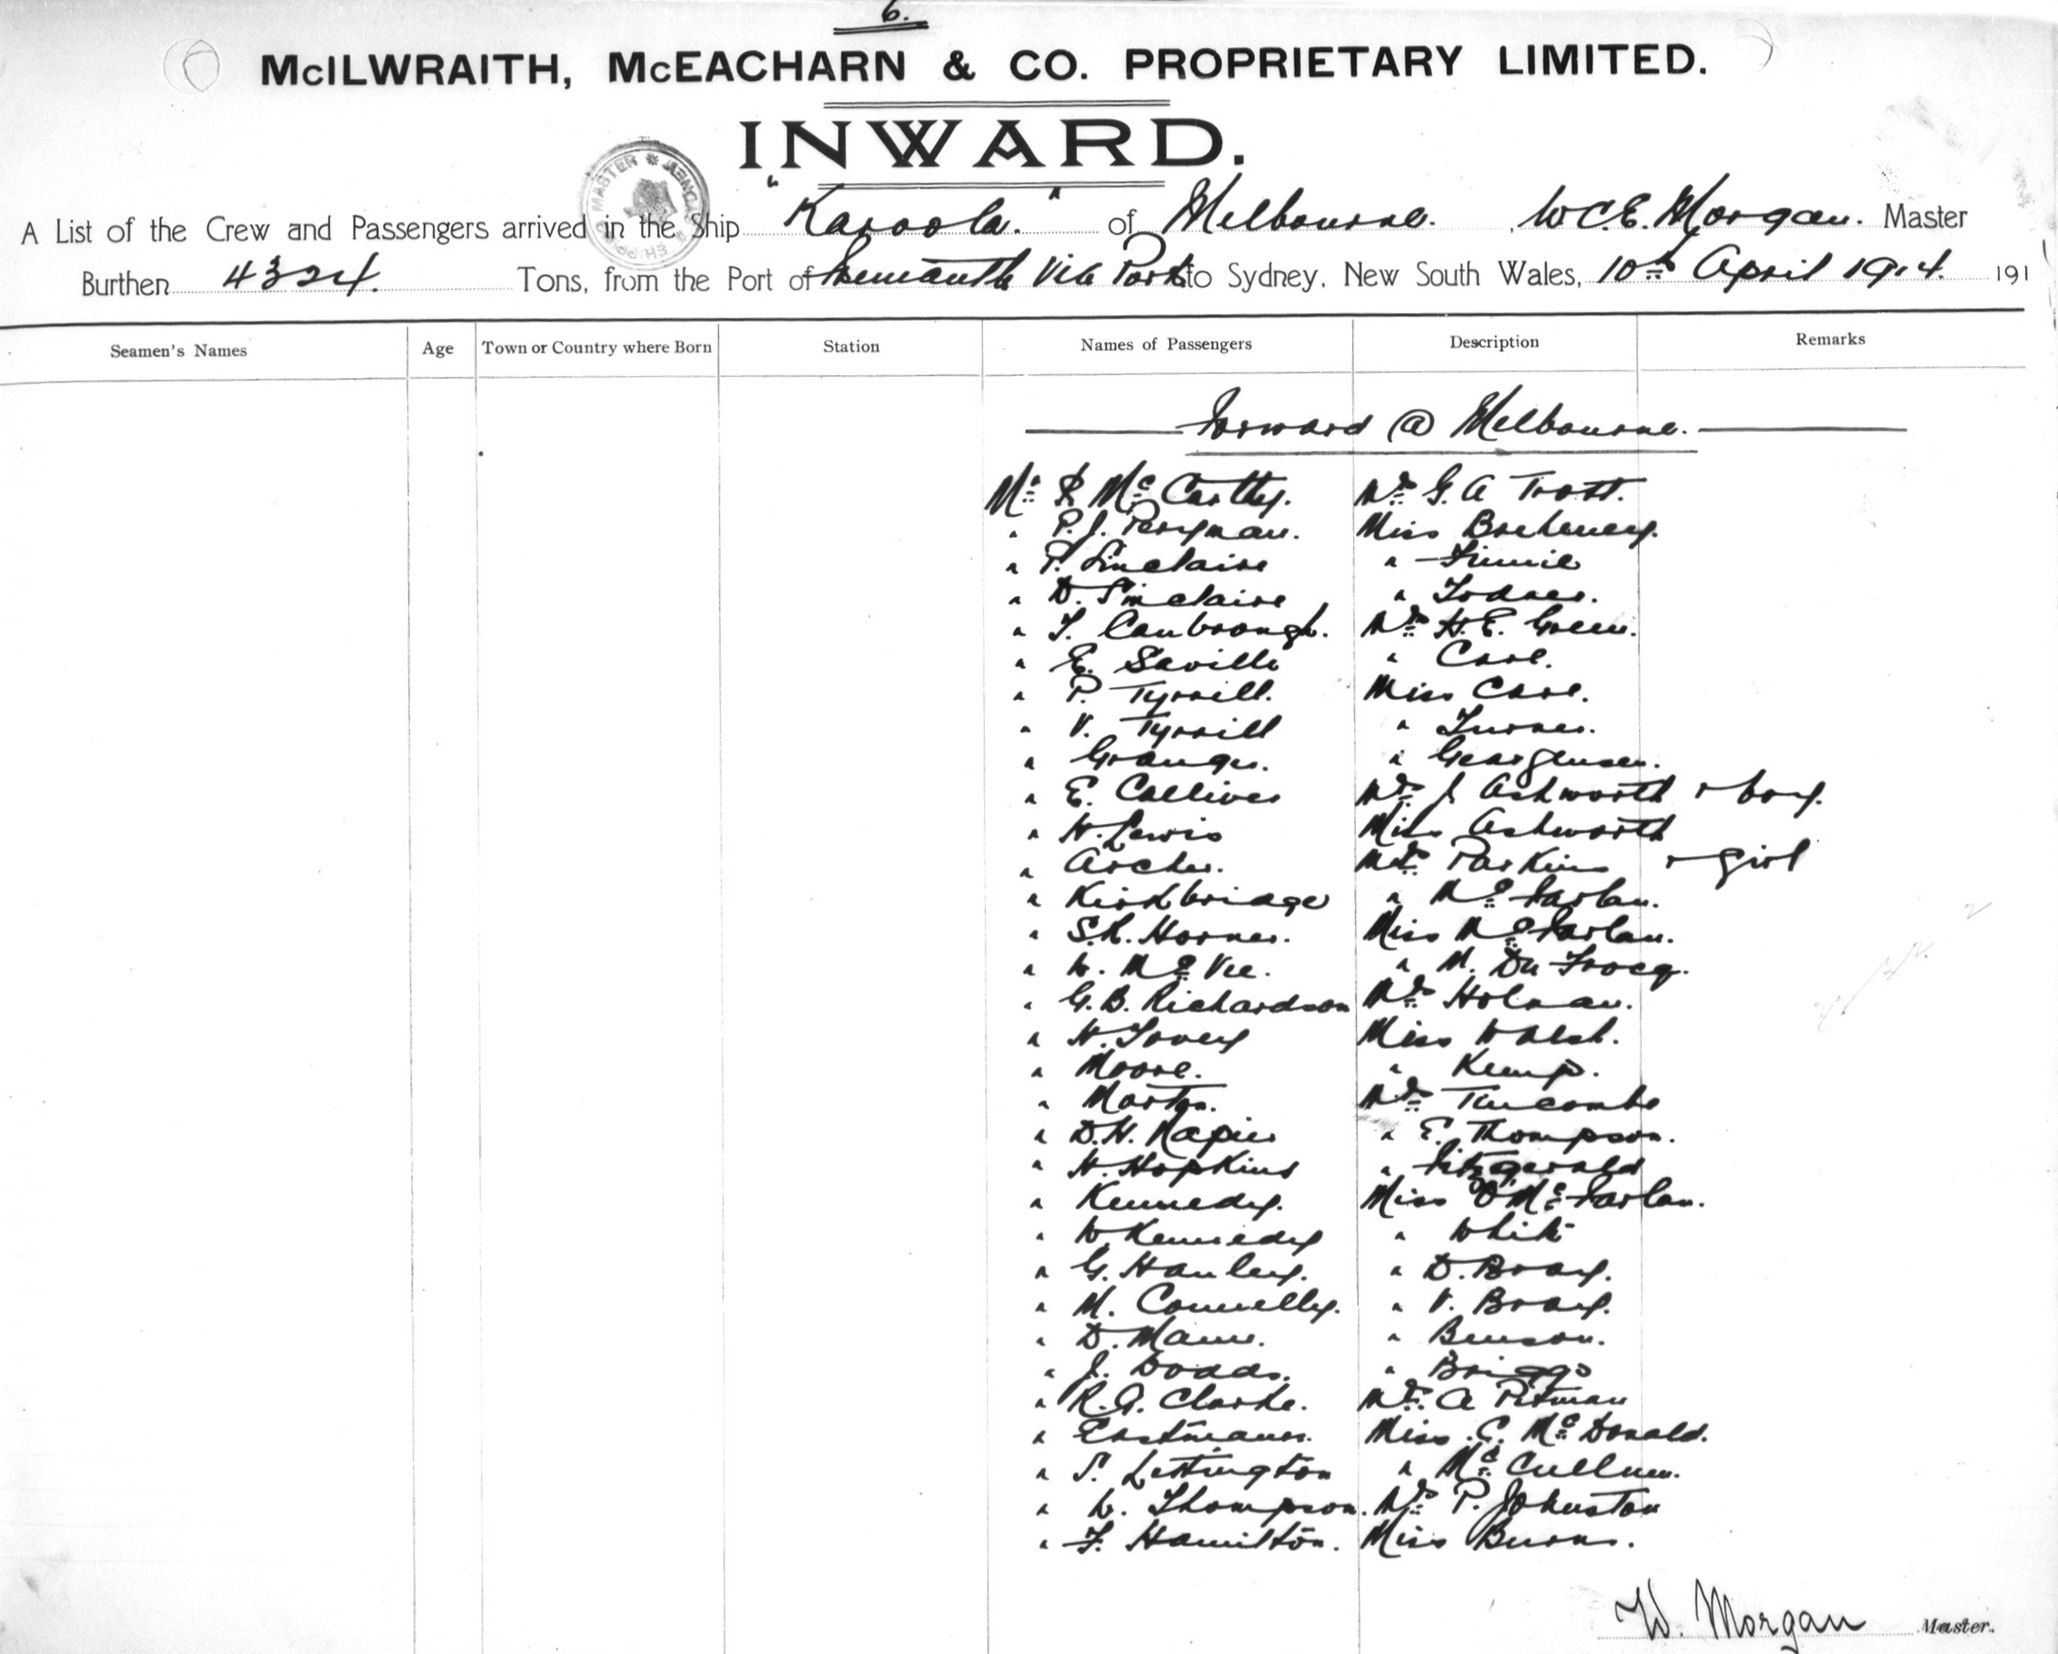 6.
McILWRAITH, McEACHARN & CO. PROPRIETARY LIMITED.
INWARD.
A List of the Crew and Passengers arrived in the Ship "Karoola." of Melbourne. , W.C.E. Morgan. Master
Burthen 4324. Tons, from the Port of Fremantle Via Ports to Sydney, New South Wales, 10th April 1914. 191
Seamen's Names Age Town or Country where Born Station Names of Passengers Description Remarks
Forward @ Melbourne.
Mr R McCarthy. Mrs G. A Trott.
" P.J. Perryman. Miss
" P. Sinclaire "
" D. Sinclaire "
" Mrs H.E. Green.
" E. Saville "
" P. Tyrrill. Miss
" V. Tyrrill " Turner.
" Granger. "
" E. Mrs J Ashworth + boy.
" H. Lewis Miss Ashworth
" Archer. Mrs Parkins + girl
" Kirkbridge " McFarlan.
" S.R. Horner. Miss McFarlan.
" W. McVee. " M. Du Frocq.
" G.B. Richardson Mrs Holman.
" H. Miss Walsh.
" Moore. " Kemp.
" Morton. Mrs
" D.H. Napier " E. Thompson.
" H. Hopkins " Fitzgerald
" Kennedy. Miss O McFarlan.
" W Kennedy " White
" G. Hanley. " D. Bray.
" M. Connelly. " V. Bray.
" D. Mann. " Benson.
" J. Dodds. " Briggs
" R.G. Clarke. Mrs A Pitman
" Eastmann. Miss C. McDonald.
" S. Lettington " McCullum.
" W. Thompson. Mrs P. Johnston
" F. Hamilton. Miss Burns.
W. Morgan Master.